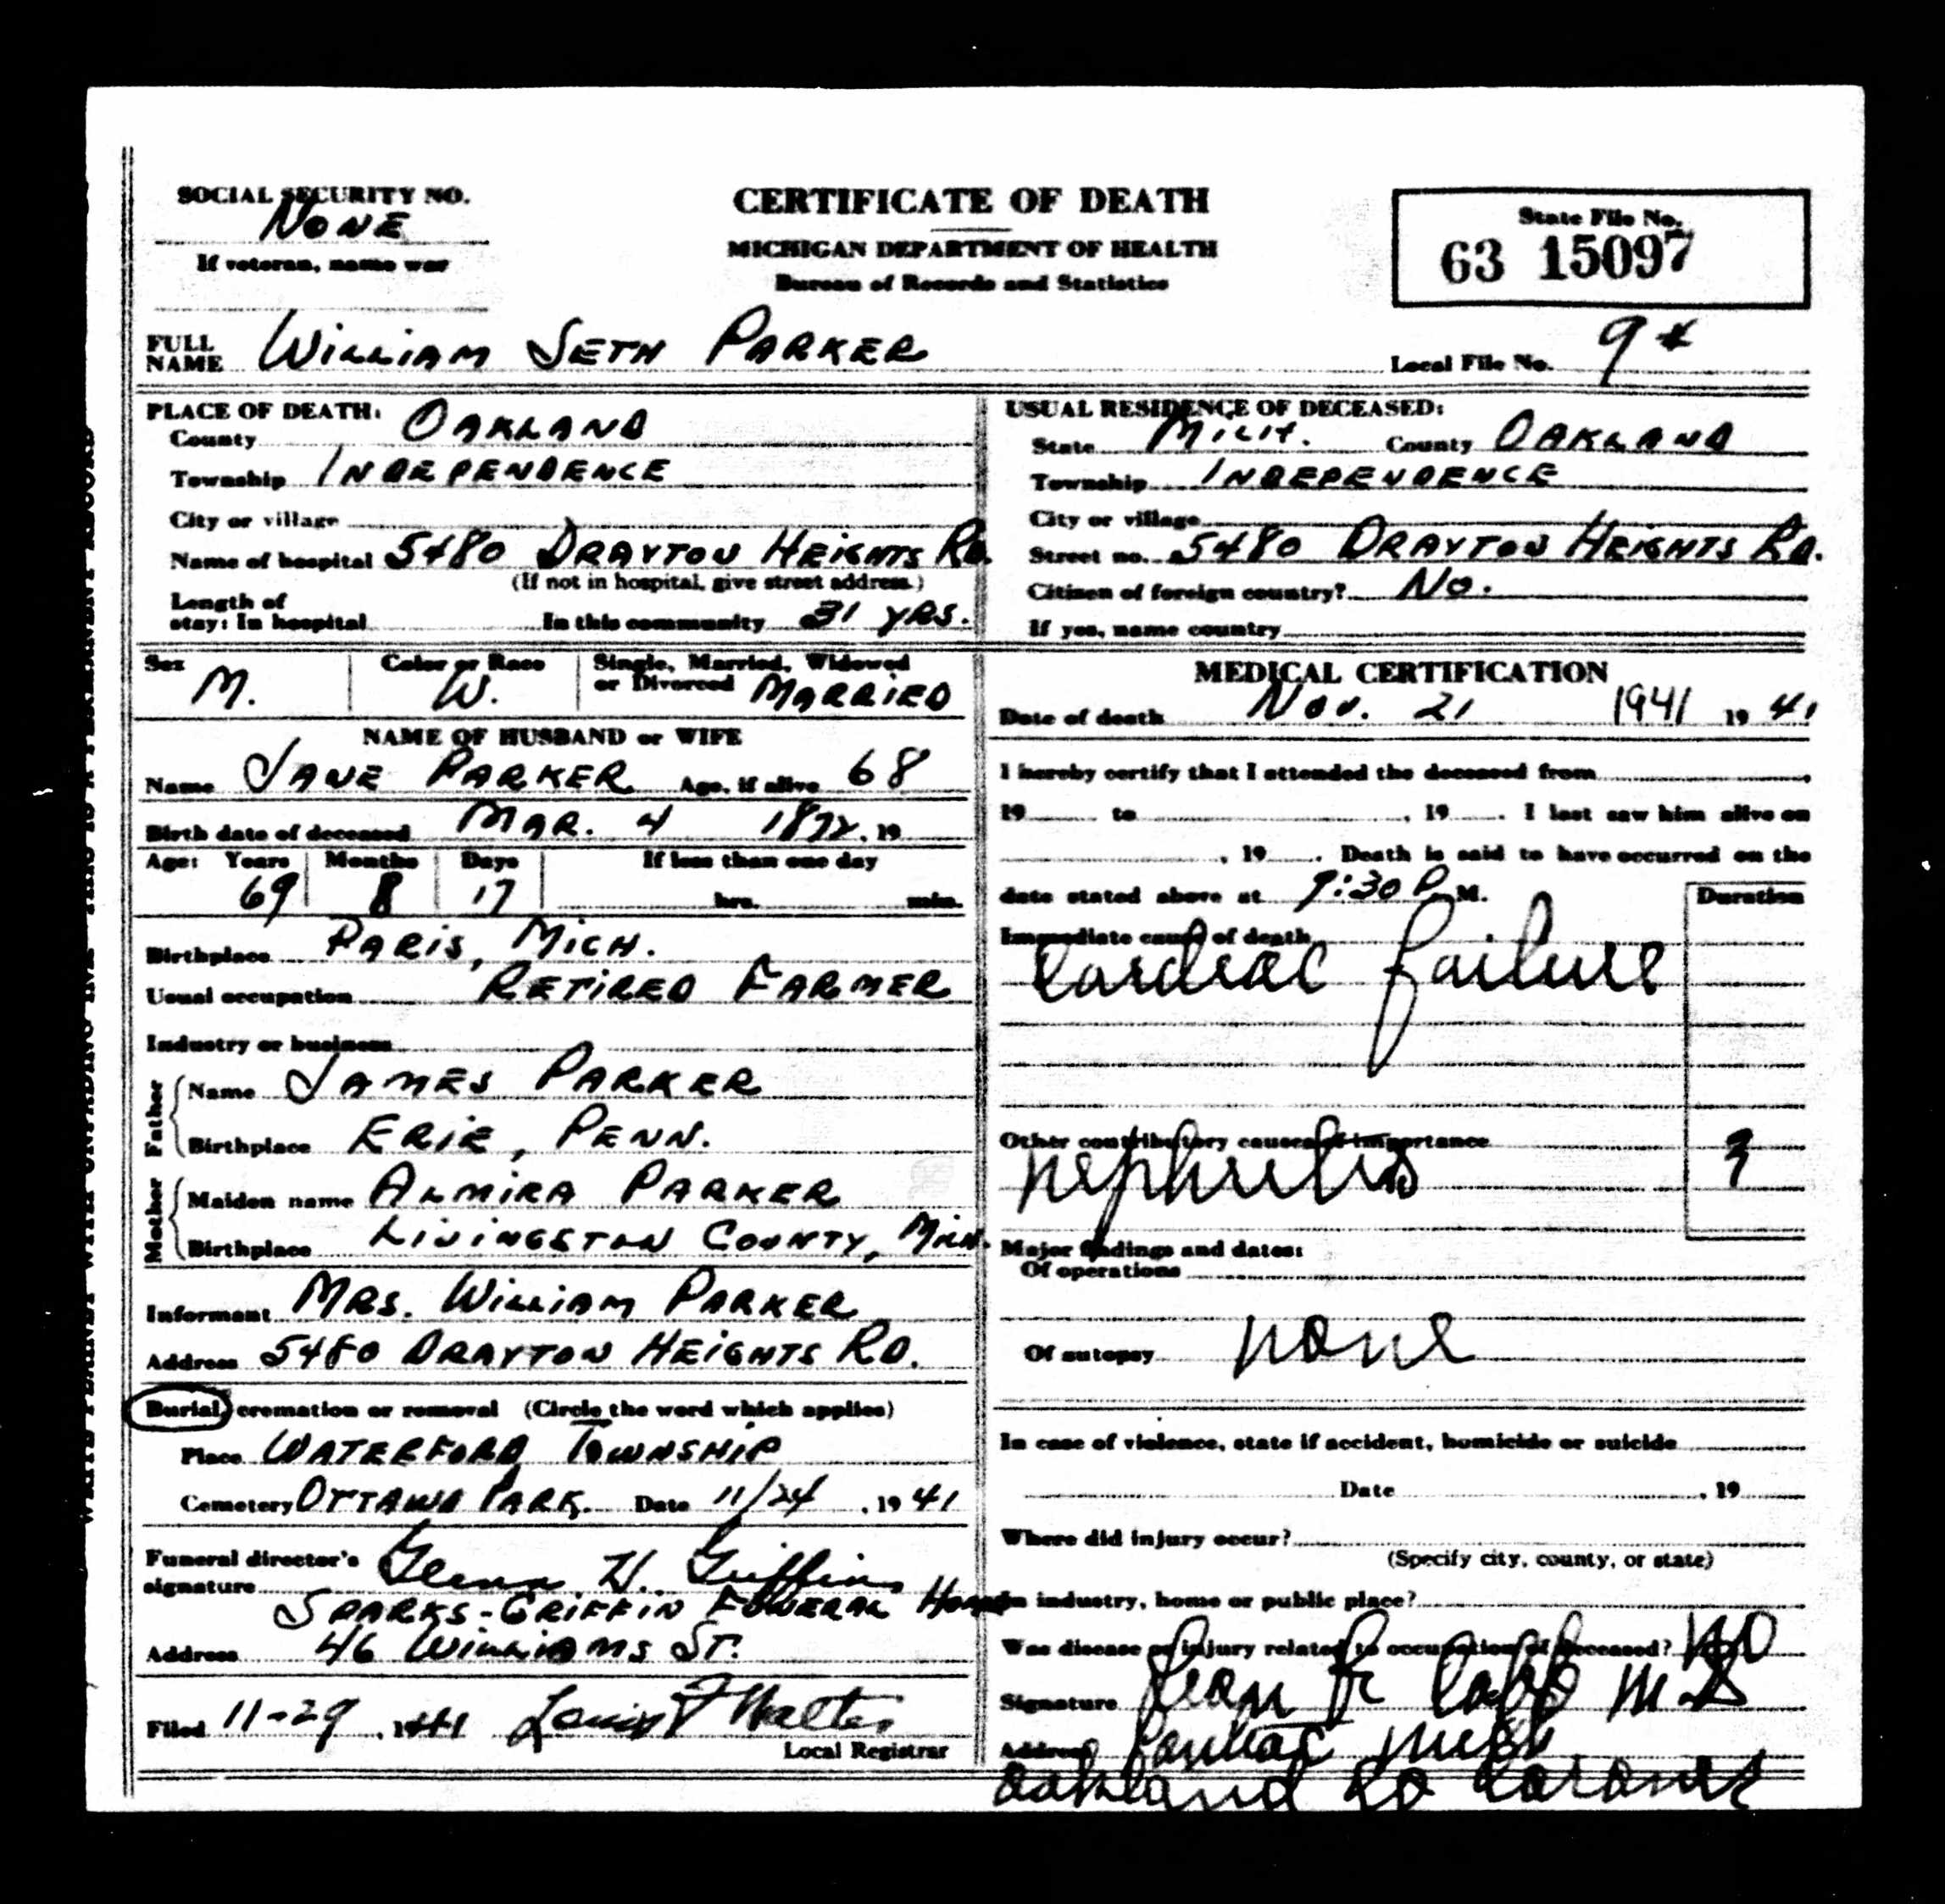 SOCIAL SECURITY NO.
NONE
If veteran, name war
CERTIFICATE OF DEATH
MICHIGAN DEPARTMENT OF HEALTH
Bureau of Records and Statistics
State File No.
63 15097
FULL NAME WILLIAM SETH PARKER
Local File No. 94
PLACE OF DEATH:
County OAKLAND
Township INDEPENDENCE
City or village
Name of hospital 5480 DRAYTON HEIGHTS RD.
(If not in hospital, give street address.)
Length of stay: In hospital In this community 31 YRS.
USUAL RESIDENCE OF DECEASED:
State MICH. County OAKLAND
Township INDEPENDENCE
City or village
Street no. 5480 DRAYTON HEIGHTS RD.
Citizen of foreign country? NO.
If yes, name country
Sex M.
Color or Race W.
Single, Married, Widowed or Divorced MARRIED
NAME OF HUSBAND or WIFE
Name JANE PARKER Age, if alive 68
Birth date of deceased MAR. 4 1872, 19
Age: Years Months Days If less than one day
69 8 17 hrs. min.
Birthplace PARIS, MICH.
Usual occupation RETIRED FARMER
Industry or business
Father
Name JAMES PARKER
Birthplace ERIE, PENN.
Mother
Maiden name ALMIRA PARKER
Birthplace LIVINGSTON COUNTY, MICH.
Informant MRS. WILLIAM PARKER
Address 5480 DRAYTON HEIGHTS RD.
Burial, cremation or removal (Circle the word which applies)
Place WATERFORD TOWNSHIP
Cemetery OTTAWA PARK Date 11/24, 1941
Funeral director's signature Glenn H. Griffin
SPARKS-GRIFFIN FUNERAL HOME
Address 46 WILLIAMS ST.
Filed 11-29, 1941 Walter
Local Registrar
MEDICAL CERTIFICATION
Date of death NOV. 21 1941 19 41
I hereby certify that I attended the deceased from ,
19 to , 19 . I last saw him alive on
, 19 . Death is said to have occurred on the
date stated above at 9:30 P. M.
Duration
Immediate cause of death
Cardiac failure
Other contributory causes of importance
nephritis ?
Major findings and dates:
Of operations
Of autopsy none
In case of violence, state if accident, homicide or suicide
Date , 19
Where did injury occur?
(Specify city, county, or state)
In industry, home or public place?
Was disease or injury related to occupation of deceased? NO
Signature M D
Address Pontiac Mich
Oakland Co Coroner